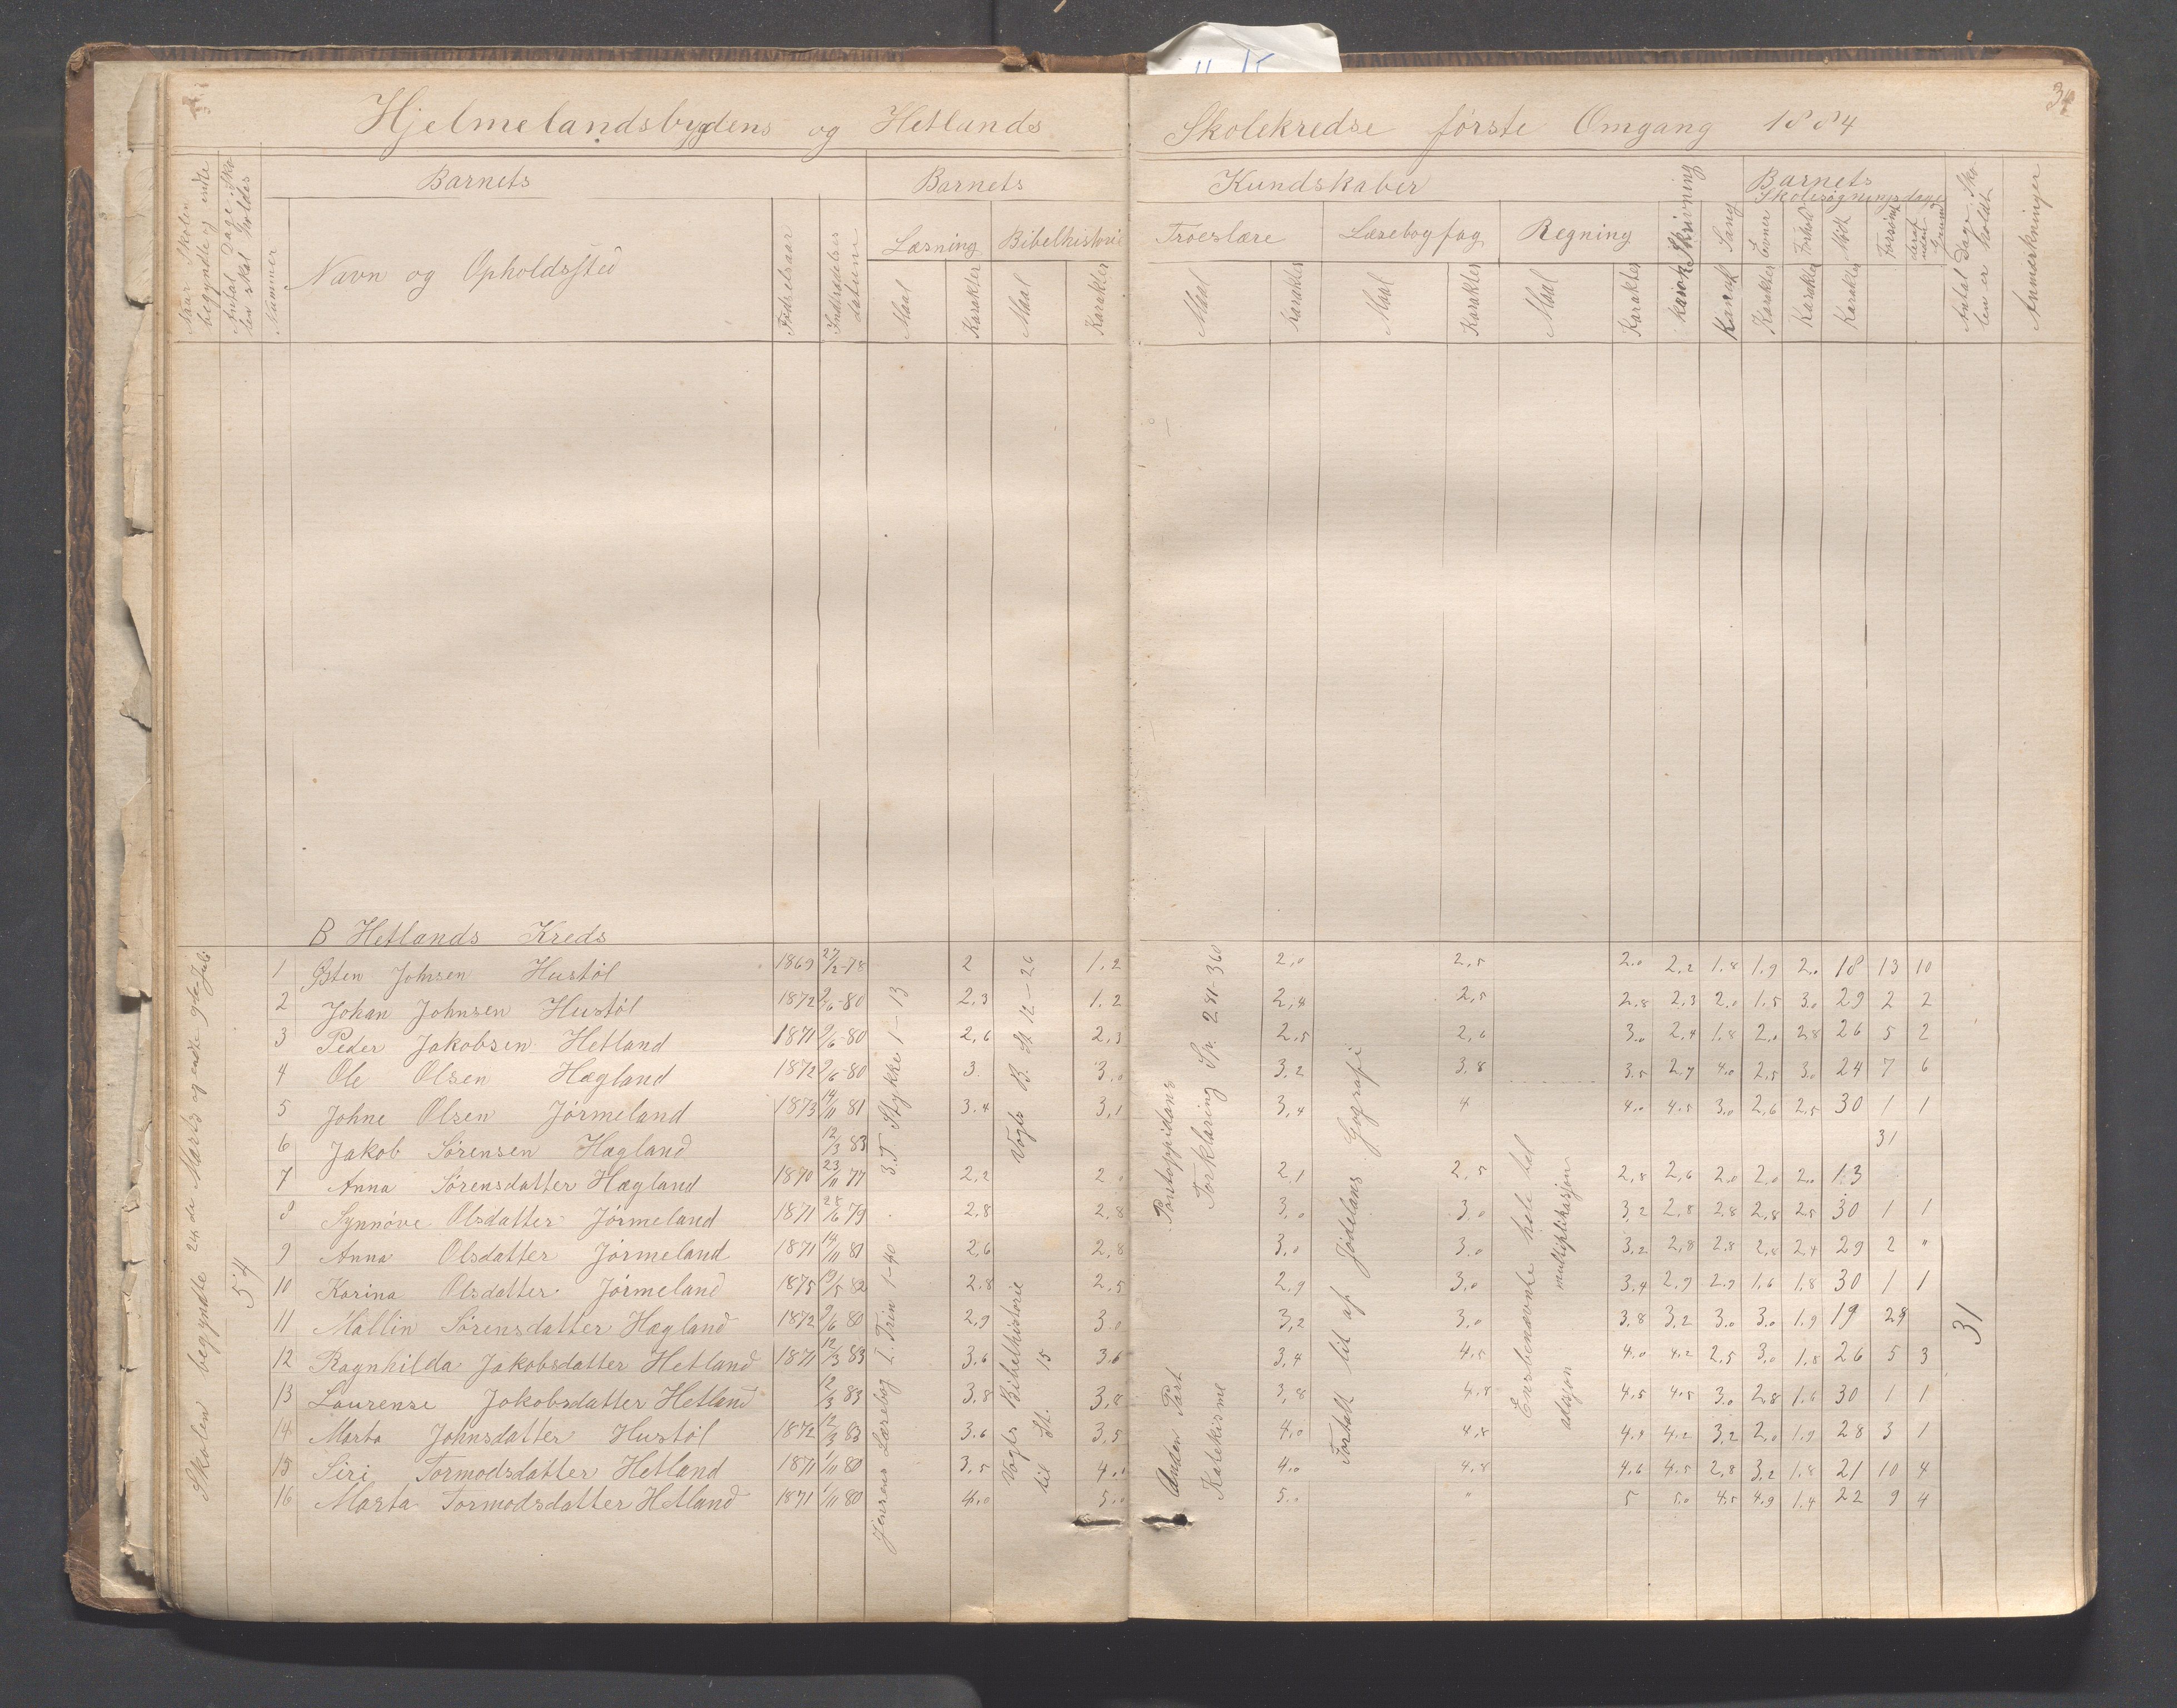 Hjelmelandsbygdens og Hetlands Skolekredse første Omgang 1884
34
Naar Skolen begyndte og endte
Antal Dage Skolen skal holdes
Nummer
Barnets
Navn og Opholdssted
Fødselsaar
Indtrædelsesdatum
Barnets Kundskaber
Læsning
Maal
Karakter
Bibelhistorie
Maal
Karakter
Troeslære
Maal
Karakter
Læsebogfag
Maal
Karakter
Regning
Maal
Karakter
Skrivning
Karak
Sang
Karak
Evner
Karakter
Forhold
Karakter
Barnets Skolesøgningsdage
Mødt
Forsømt
deraf uden Grund
Antal Dage Skolen er holdt
Anmerkninger
B Hetlands Kreds
Skolen begyndte 24de Marts og endte 9de Juli
54
1 Østen Johnsen Hustøl 1869 27/2-78 2 1.2 2,0 2,5 2.0 2.2 1.8 1.9 2.0 18 13 10
2 Johan Johnsen Hustøl 1872 9/6-80 2,3 1.2 2,4 2,5 2.8 2,3 2.0 1.5 3.0 29 2 2
3 Peder Jakobsen Hetland 1871 9/6-80 2,6 2,3 2,5 2,6 3.0 2.4 1.8 2.0 2.8 26 5 2
4 Ole Olsen Hægland 1872 9/6-80 3. 3.0 3.2 3.8 3.5 2.7 4.0 2.5 3.0 24 7 6
5 Johne Olsen Jørmeland 1873 14/11 81 3.4 3,1 3,4 4 4.0 4.5 3.0 2.6 2.5 30 1 1
6 Jakob Sørensen Hægland 12/3 83 31
7 Anna Sørensdatter Hægland 1870 23/11 77 2,2 2.0 2,1 2,5 2,8 2,6 2.0 2.0 2.0 13
8 Synnøve Olsdatter Jørmeland 1871 28/6 79 2.8 2,8 3,0 3.0 3,2 2.8 2.8 2,8 2.5 30 1 1
9 Anna Olsdatter Jørmeland 1871 14/11 81 2,6 2,8 3.0 3.0 3.2 2,8 2.8 2,8 2.4 29 2 "
10 Karina Olsdatter Jørmeland 1875 13/5 82 2.8 2.5 2.9 3.0 3.4 2.9 2.9 1.6 1.8 30 1 1
11 Mallin Sørensdatter Hægland 1872 9/6 80 2,9 3.0 3,2 3.0 3.8 3.2 3.0 3.0 1.9 19 29
12 Ragnhilda Jakobsdatter Hetland 1871 12/3 83 3.6 3.6 3,4 4.5 4.0 4.2 2.5 3.0 1.8 26 5 3
13 Laurense Jakobsdatter Hetland 12/3 83 3.8 3.8 3,8 4.8 4.5 4.5 3.0 2.8 1.6 30 1 1
14 Marta Johnsdatter Hustøl 1872 12/3 83 3.6 3,5 4.0 4.8 4.9 4.2 3.2 2.0 1.9 28 3 1
15 Siri Tormodsdatter Hetland 1871 1/11 80 3,5 4.0 4.0 4.8 4.6 4.5 2.8 3.2 1.8 21 10 4
16 Marta Tormodsdatter Hetland 1871 1/11 80 4.0 5.0 5.0 " 5 5.0 4.5 4.9 1.4 22 9 4
3.T. Stykke 1-13
Jensens Læsebog I. Trin 1-40
Vogts B. St. 12-26
Vogts Bibelhistorie
til St. 15
Pontoppidans
Forklaring Sp. 281-360
Anden Part
Katekisme
Fortalt lit af Jødelans Gografi
Ensbenævnte hele tal
multiplikasjon
adisjon
31